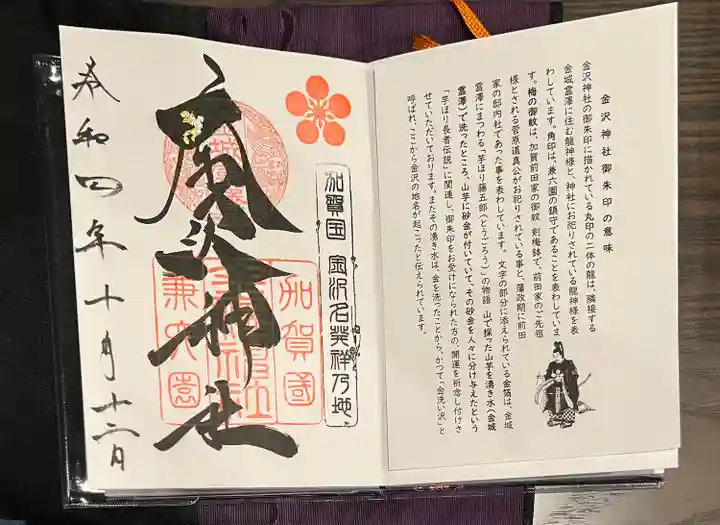 金沢神社御朱印の意味
金沢神社の御朱印に描かれている丸印の二体の龍は、隣接する
金城霊澤に住む龍神様と、神社にお祀りされている龍神様を表
わしています。角印は、兼六園の鎮守であることを表わしていま
す。梅の御紋は、加賀前田家の御紋 剣梅鉢で、前田家のご先祖
様とされる菅原道真公がお祀りされている事と、藩政期に前田
家の邸内社であった事を表わしています。文字の部分に添えられている金箔は、金城
霊澤にまつわる「芋ほり藤五郎(とうごろう)」の物語 山で採った山芋を湧き水(金城
霊澤)で洗ったところ、山芋に砂金が付いていて、その砂金を人々に分け与えたという
「芋ほり長者伝説」に関連し、御朱印をお受けになられた方の、開運を祈念し付けさ
せていただいております。またその湧き水は、金を洗ったことから、かつて「金洗い沢」と
呼ばれ、ここから金沢の地名が起こったと伝えられています。
加賀国 金沢名発祥乃地
加賀國
兼六園
金沢神社
令和四年十月十二日